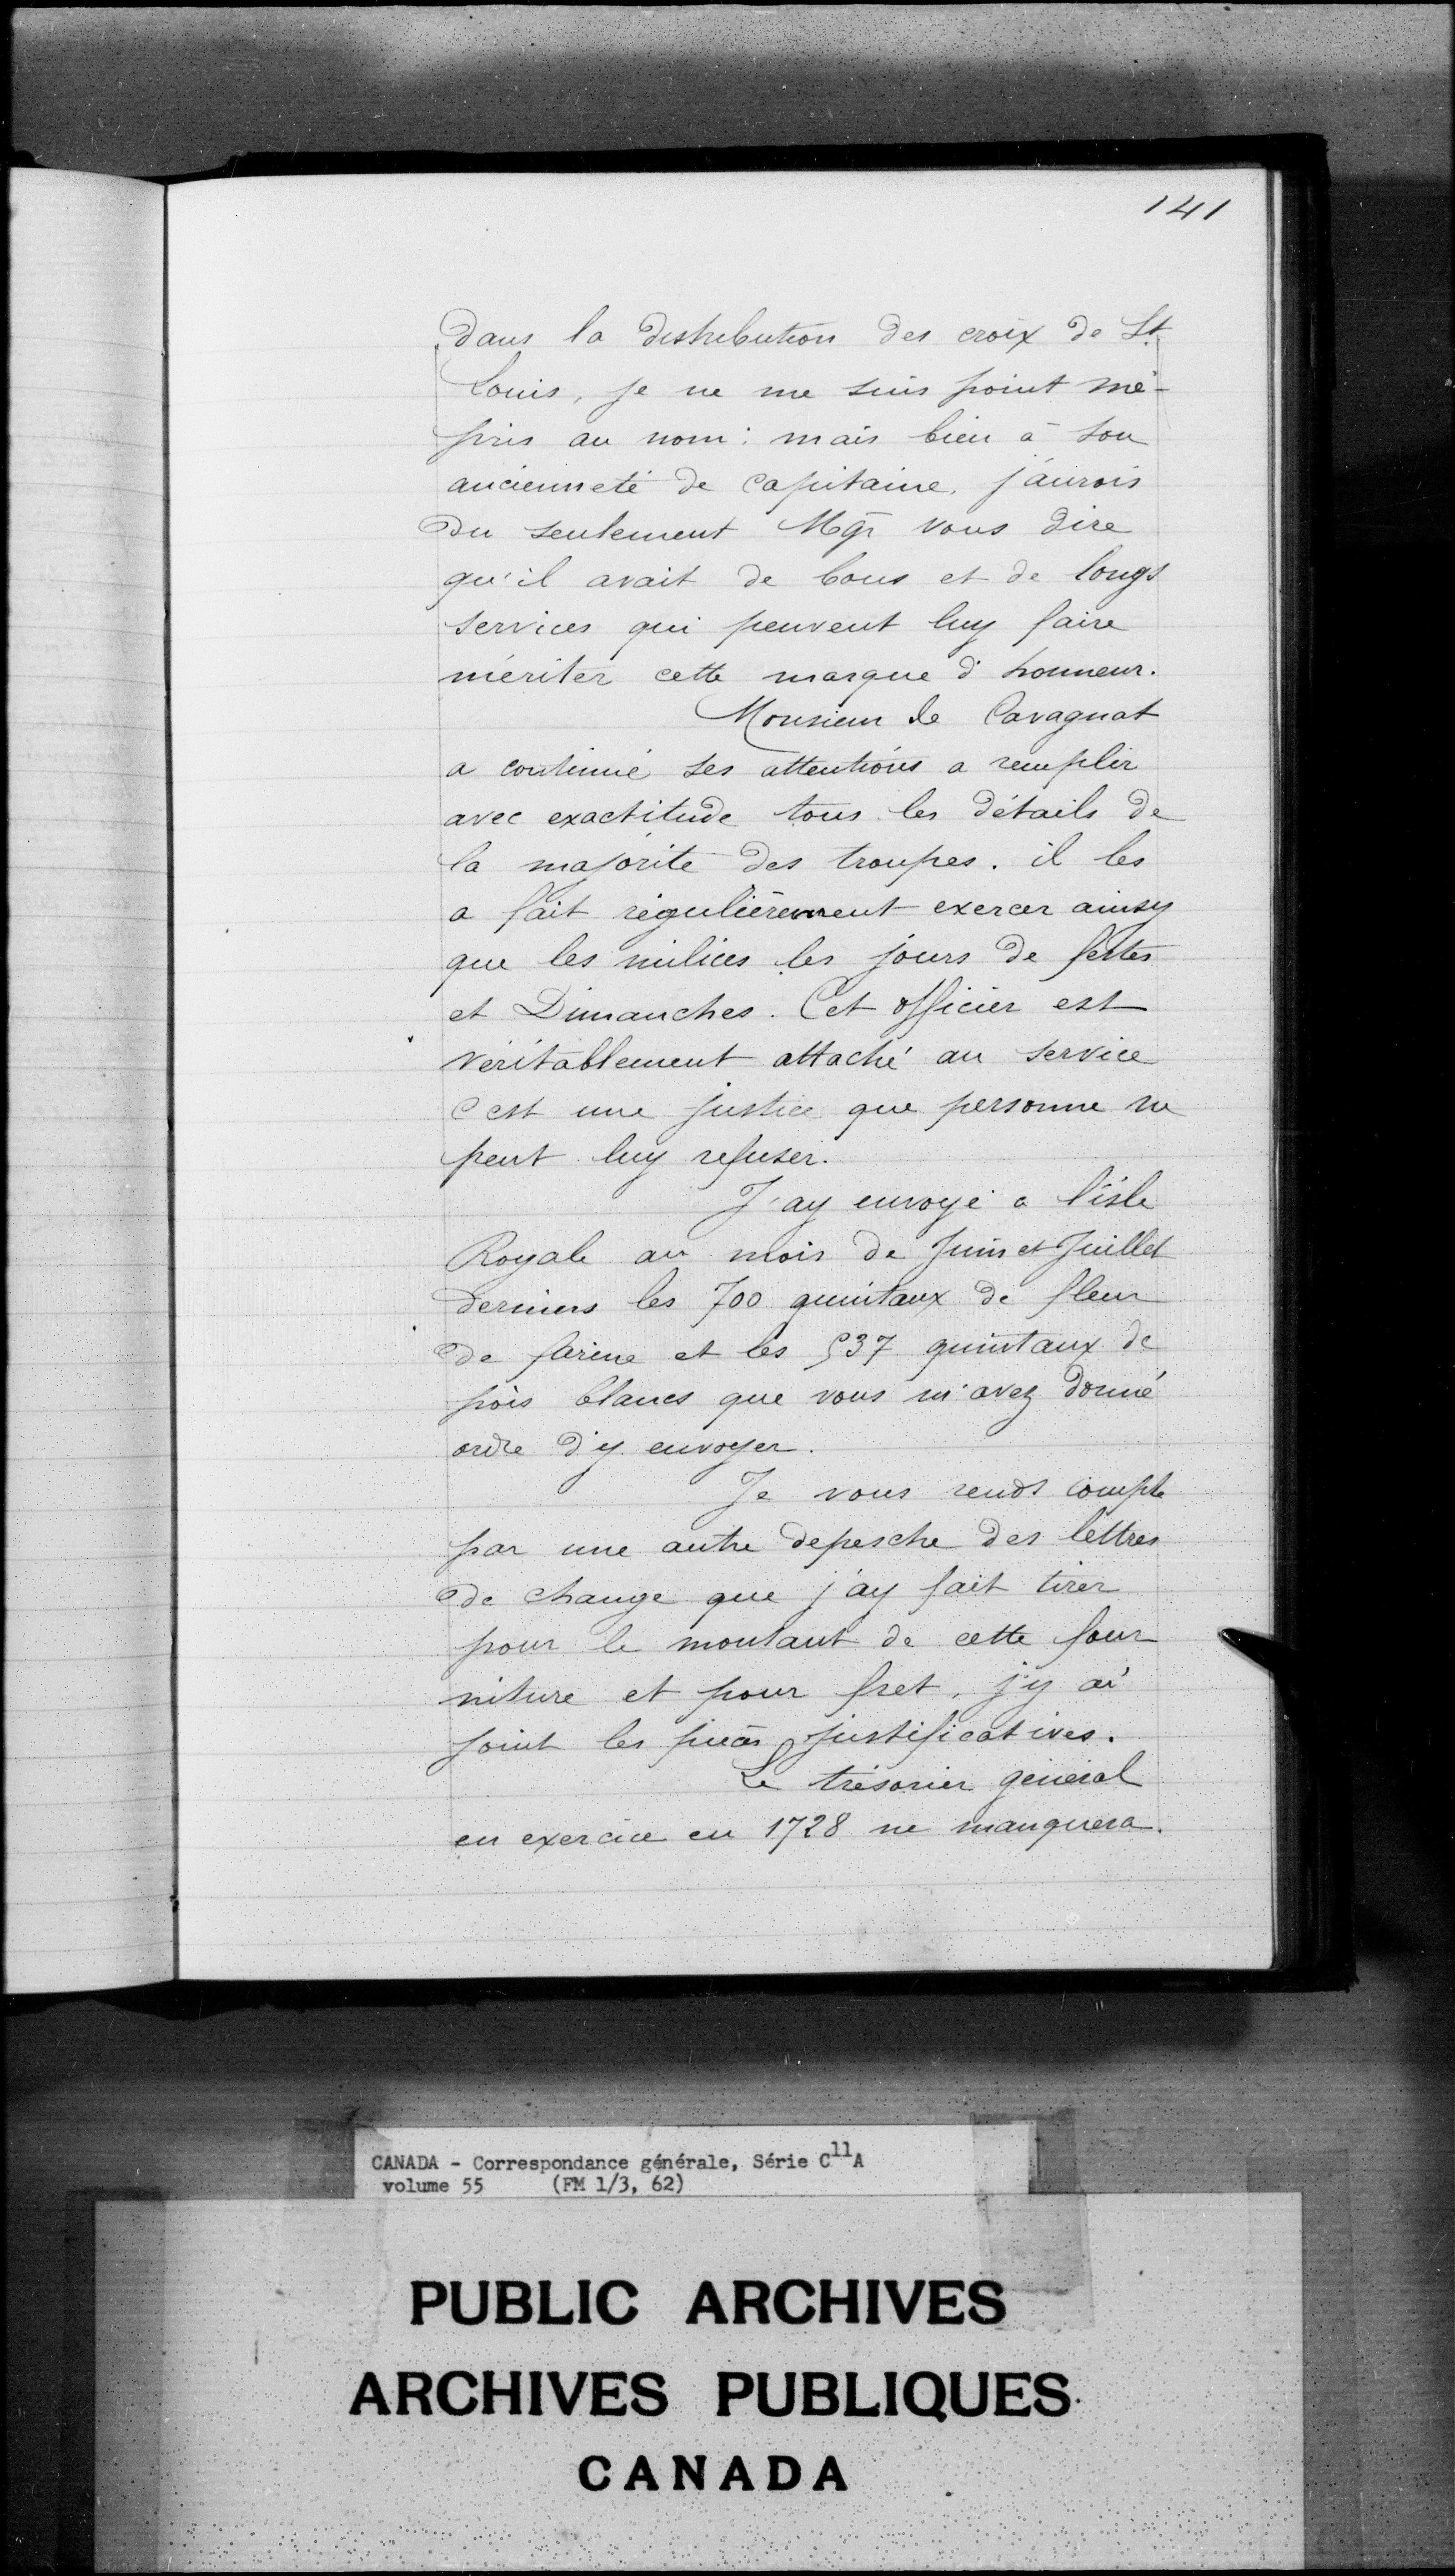 141
dans la distribution des croix de St
Louis, je ne me suis point mé-
pris au nom: mais bien à son
ancienneté de capitaine, j'aurois
du seulement Mgr vous dire
qu'il avait de bons et de longs
services qui peuvent luy faire
mériter cette marque d'honneur.
Monsieur de Cavagnat
a continué ses attentions a remplir
avec exactitude tous les détails de
la majorité des troupes. il les
a fait régulièrement exercer ainsy
que les milices les jours de festes
et Dimanches. Cet officier est
véritablement attaché au service
c'est une justice que personne ne
peut luy refuser.
J'ay envoyé a l'isle
Royale au mois de Juin et Juillet
derniers les 700 quintaux de fleur
de farine et les 537 quintaux de
pois blancs que vous m'avez donné
ordre d'y envoyer.
Je vous rends compte
par une autre depesche des lettres
de change que j'ay fait tirer
pour le montant de cette four
niture et pour fret, j'y ai
joint les pièces justificatives.
Le trésorier général
en exercice en 1728 ne manquera.
CANADA - Correspondance générale, Série C11A
volume 55 (FM 1/3, 62)
PUBLIC ARCHIVES
ARCHIVES PUBLIQUES
CANADA